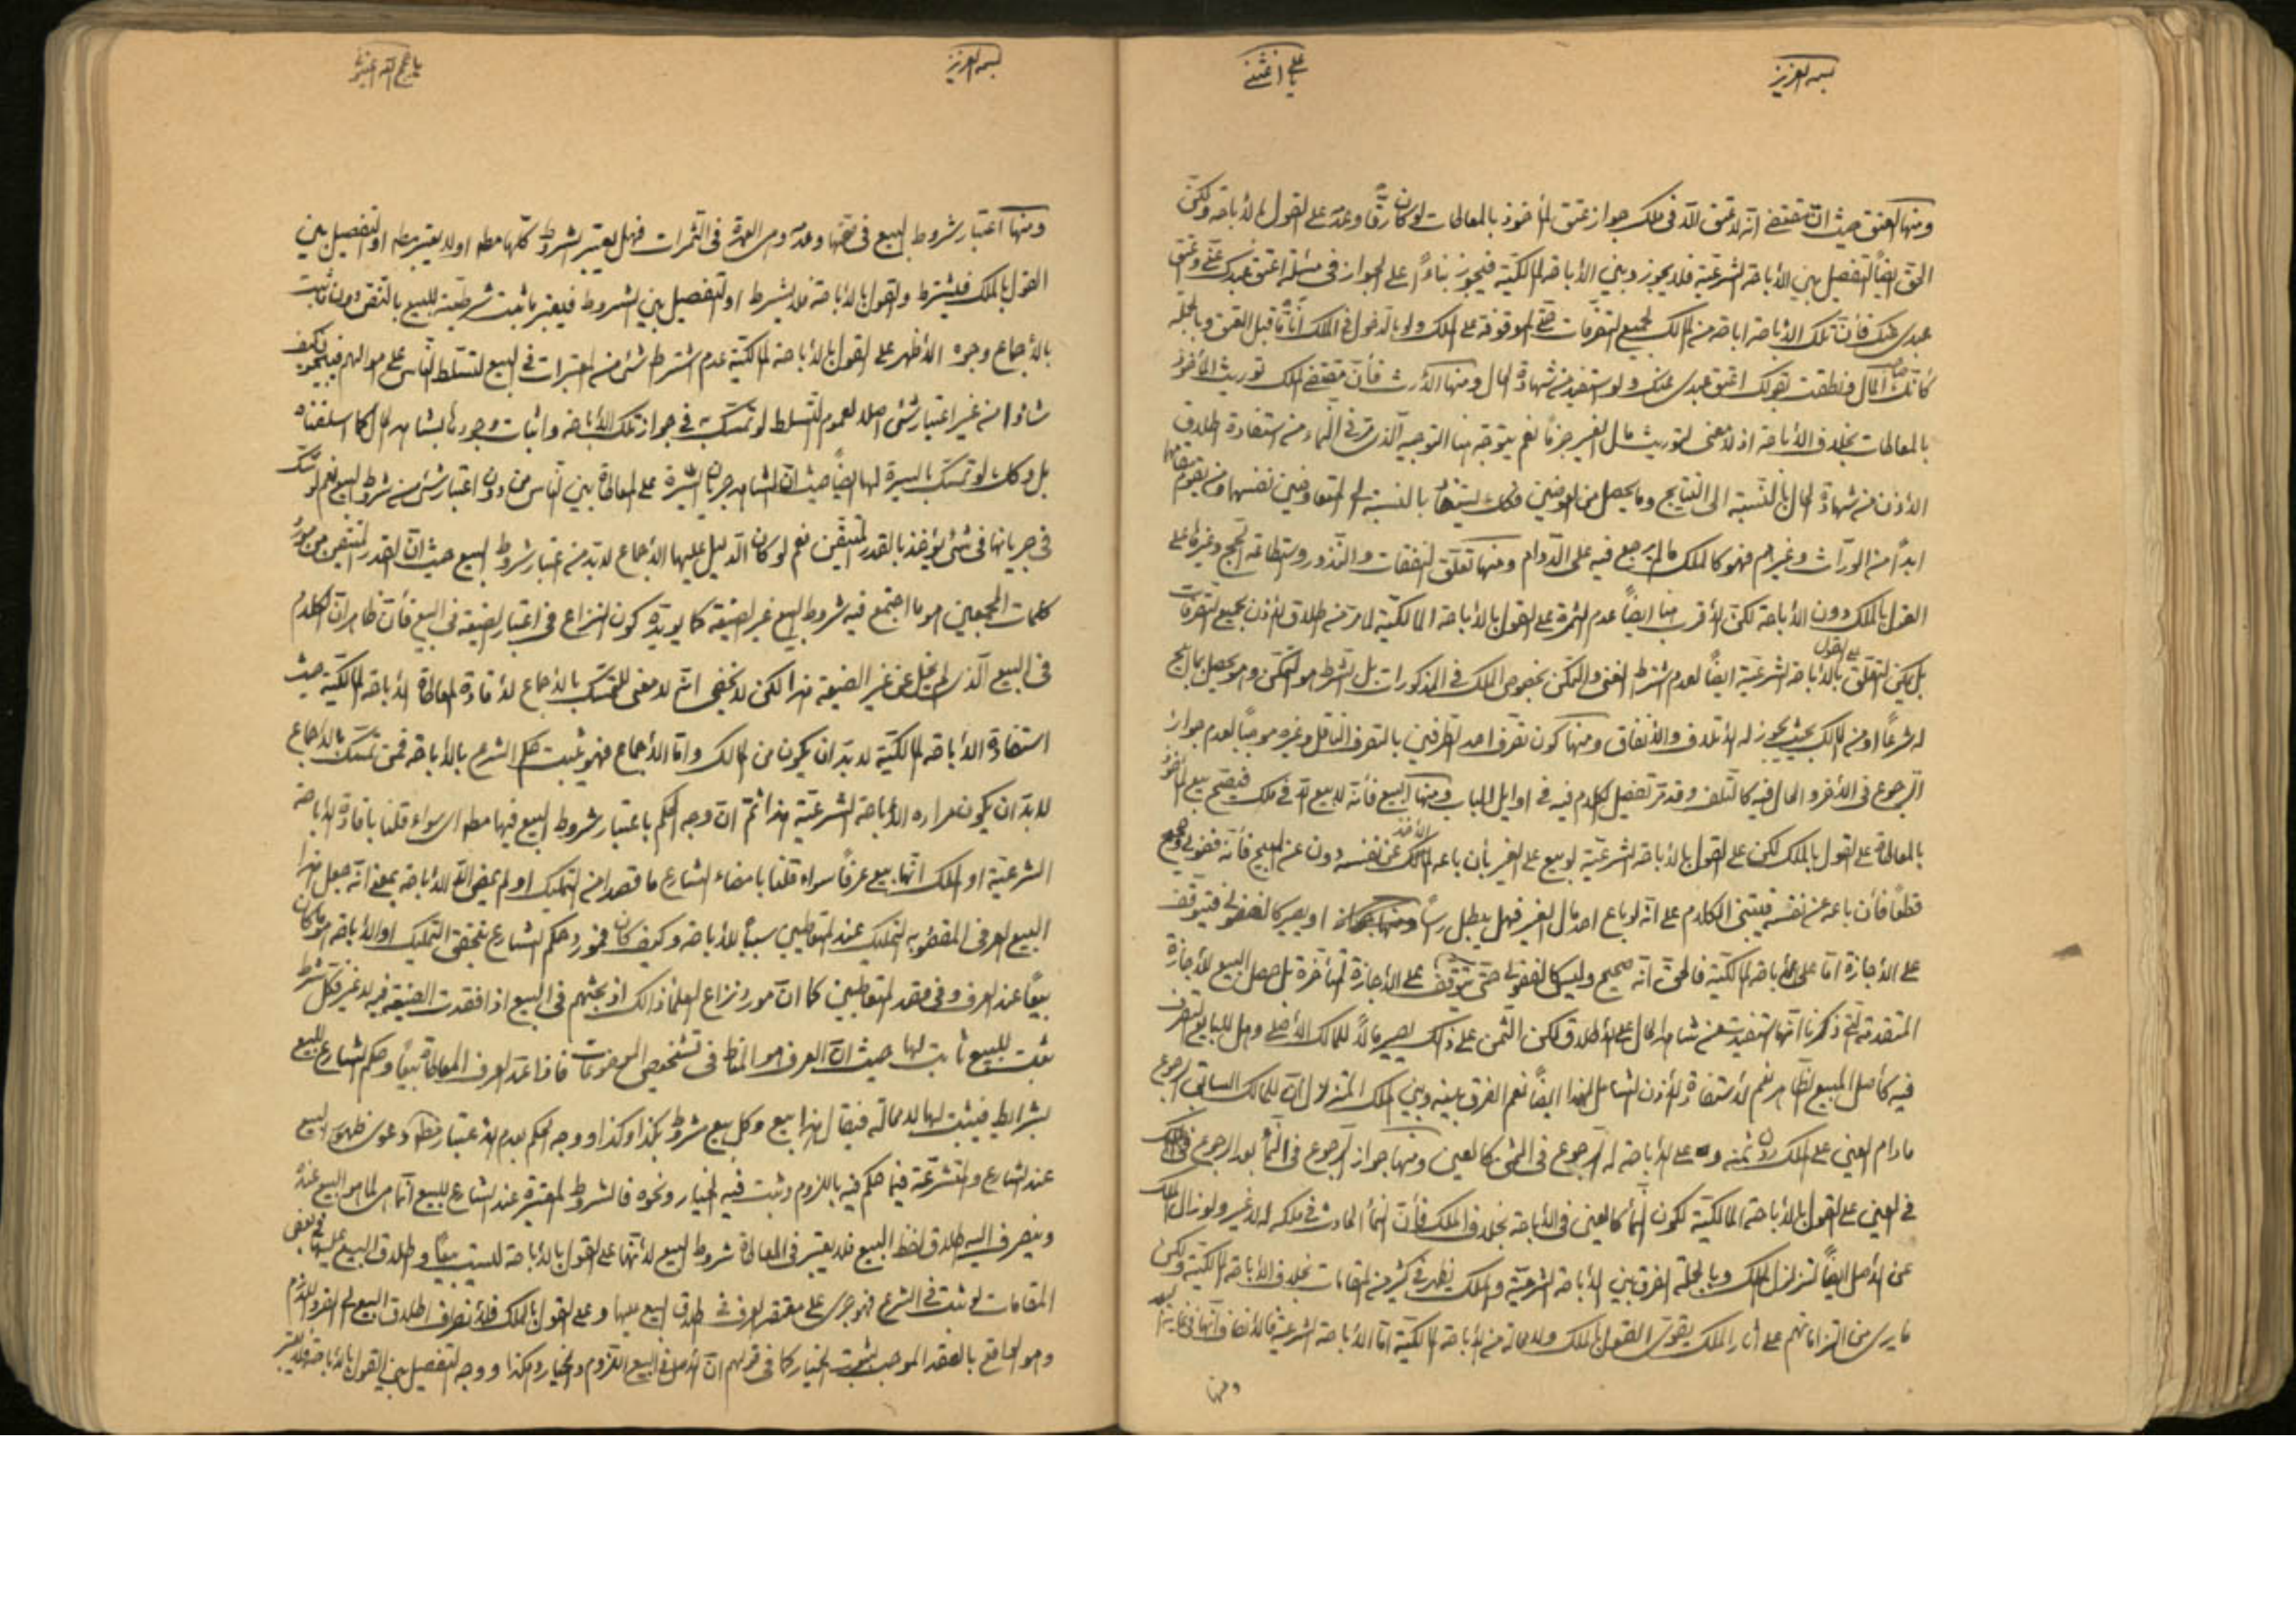 بسمه العزيز
يا علي اغثني
ومنها العتق حيث انّ مقتضى انّه لا عتق الّا فى ملك جواز عتق المأخوذ بالمعاطات لو كان رقّاً وعدمه على القول بالأباحة ولكنّ
الحق ايضاً التفصيل بين الأباحة الشرعيّة فلا يجوز وبين الأباحة المالكيّة فيجوز بناءً على الجواز فى مسئلة اعتق عبدك عنّى وعتق
عبدى عنك فأنّ تلك الأباحة اباحة من المالك لجميع التصرّفات حتّى الموقوفة على الملك ولو بالدخول فى الملك آناً مّا قبل العتق وبالجملة
كأنّك المال ونطقت بقولك اعتق عبدى عنك ولو استفيد من شهادة الحال ومنها الأرث فأنّ مقتضى الملك توريث المأخوذ
بالمعاطات بخلاف الأباحة اذ لا معنى لتوريث مال الغير جزماً نعم يتوجّه هنا التوجيه الّذى مرّ فى النّماء من استفادة اطلاق
الأذن من شهادة الحال بالنّسبة الى النتايج وما يحصل من العوضين فكك يستفاد بالنسبة الى المتعاوضين نفسهما ومن يقوم مقامهما
ابداً من الورّاث وغيرهم فهو كالملك ما لم يرجع فيه على الدّوام ومنها تعلّق النفقات والنّذور واستطاعة الحجّ وغيرها على
القول بالملك دون الأباحة لكن الأقرب هنا ايضاً عدم الثمرة على القول بالأباحة المالكيّة لما مرّ من اطلاق الأذن بجميع التصرّفات
بل يمكن التعلّق على القول بالأباحة الشرعيّة ايضاً لعدم اشتراط الغنى والتمكّن بخصوص الملك فى المذكورات بل الشرط هو التمكّن وهو يحصل بمال ابيح
له شرعاً او من المالك بحيث يجوز له الأتلاف والأنفاق ومنها كون تصرّف احد الطرفين بالتصرف الناقل وغيره موجباً لعدم جواز
الرجوع فى الأخر والحال فيه كالتلف وقد مرّ تفصيل الكلام فيه فى اوايل الباب ومنها البيع فأنّه لا بيع الّا فى ملك فيصحّ بيع المأخوذ
بالمعاطاة على القول بالملك لكن على القول بالأباحة الشرعيّة لو بيع على الغير بأن باعه المالك الأخذ عن نفسه دون عن المبيح فأنّه فضولى وصحيح
قطعاً فأن باعه عن نفسه فيبتنى الكلام على انّه لو باع احد مال الغير فهل يبطل رأساً او يصير كالفضولى فيتوقّف
على الأجازة امّا على الأباحة المالكيّة فالحقّ انّه صحيح وليس كالفضولى حتّى يتوقّف على الأجازة المتأخرة بل حصل البيع للأجازة
المتقدمة الّتى ذكرنا انّها استفيدت من شاهد الحال على الأطلاق لكن الثمن على ذلك يصير مالاً للمالك الأصلى وهل للبايع التصرف
فيه كأصل المبيع الظاهر نعم لأستفادة الأذن الشامل لهذا ايضاً نعم الفرق بينه وبين الملك المتزلزل انّ للمالك السابق الرجوع
ما دام العين على الملك دون ثمنه وعلى الأباحة له الرجوع فى الثمن كالعين ومنها جواز الرجوع فى النّماء بعد الرجوع
فى العين على القول بالأباحة المالكيّة لكون النّماء كالعين فى الأباحة بخلاف الملك فأنّ النماء الحادث فى ملكه له لا غير ولو زال الملك
عن الأصل ايضاً لتزلزل الملك وبالجملة الفرق بين الأباحة الشرعيّة والملك يظهر فى كثير من المقامات بخلاف الأباحة المالكيّة ولكن
ما يرى من التزاماتهم على آثار الملك يقوّى القول بالملك ولا محالة من الأباحة المالكيّة امّا الأباحة الشرعيّة فالأنصاف انّها فى غاية البعد
ومنها
بسمه العزيز
ومنها اعتبار شروط البيع فى صحّتها وعدمه وهى العمدة فى الثمرات فهل يعتبر الشروط كلّها مطه او لا يعتبر مطه او التفصيل بين
القول بالملك فيشترط والقول بالأباحة فلا يشترط او التفصيل بين الشروط فيعتبر ما ثبت شرطيّته للبيع بالنصّ دون ما ثبت
بالأجماع وجوه الأظهر على القول بالأباحة المالكيّة عدم اشتراط شئ من المعتبرات فى البيع لتسلّط النّاس على اموالهم فيبيحون كيف
شاؤا من غير اعتبار شئ اصلاً لعموم التسلط لو تمسّك به فى جواز تلك الأباحة واثبات وجودها بشاهد الحال كما اسلفناه
بل وكك لو تمسّك بالسيرة لها ايضاً حيث انّ المشاهد جريان السّيرة على المعاطاة بين النّاس من دون اعتبار شئ من شروط البيع نعم لو شكّ
فى جريانها فى شئ يؤخذ بالقدر المتيقّن نعم لو كان الدّليل عليها الأجماع لا بدّ من اعتبار شروط البيع حيث انّ القدر المتيقن من مورد
كلمات المجمعين هو ما اجتمع فيه شروط البيع غير الصّيغة كما يؤيّده كون النزاع فى اعتبار الصيغة فى البيع فأنّ ظاهره انّ الكلام
فى البيع الّذى لم يخل عن غير الصّيغة هذا لكن لا يخفى انّه لا معنى للتمسّك بالأجماع لأفادة المعاطاة الأباحة المالكيّة حيث
استفادة الأباحة المالكيّة لا بدّ ان يكون من المالك وامّا الأجماع فهو يثبت حكم الشرع بالأباحة فمن تمسّك بالأجماع
لا بدّ ان يكون مراده الأباحة الشرعيّة هذا ثمّ انّ وجه الحكم باعتبار شروط البيع فيها مطه اى سواء قلنا بافادة الأباحة
الشرعيّة او الملك انّها بيع عرفاً سواء قلنا بامضاء الشارع ما قصدا من التمليك او لم يمض الّا الأباحة بمعنى انّه جعل هذا
البيع العرفى المقصود به التمليك عند المتعاطيين سبباً للأباحة وكيف كان فمورد حكم الشارع بتحقّق التمليك او الأباحة هو ما كان
بيعاً عند العرف وفى قصد المتعاطيين كما انّ مورد نزاع العلماء ذالك اذ بحثهم فى البيع اذا فقدت الصّيغة فيه لا غير فكلّ شرط
يثبت للبيع ثابت لها حيث انّ العرف هو المناط فى تشخيص الموضوعات فاذا عدّ العرف المعاطاة بيعاً وحكم الشارع للبيع
بشرايط فيثبت لها لا محالة فيقال هذا بيع وكل بيع شروط بكذا وكذا ووجه الحكم بعدم الأعتبار مطه دعوى ظهور البيع
عند الشارع والمتشرّعة فيما حكم فيه باللزوم وثبت فيه الخيار ونحوه فالشروط المعتبرة عند الشارع للبيع انّما هى لما هو البيع عنده
وينصرف اليه اطلاق لفظ البيع فلا يعتبر فى المعاطاة شروط البيع لأنّها على القول بالأباحة ليست بيعاً واطلاق البيع عليها فى بعض
المقامات لو ثبت فى الشرع فهو جرى على مقتضى العرف فى اطلاق البيع عليها وعلى القول بالملك فلأنصراف اطلاق البيع الى الفرد اللازم
وهو الواقع بالعقد الموجب لثبوت الخيار كما فى قولهم انّ الأصل فى البيع اللّزوم والخيار وهكذا ووجه التفصيل بين القول بالأباحة فلا يعتبر